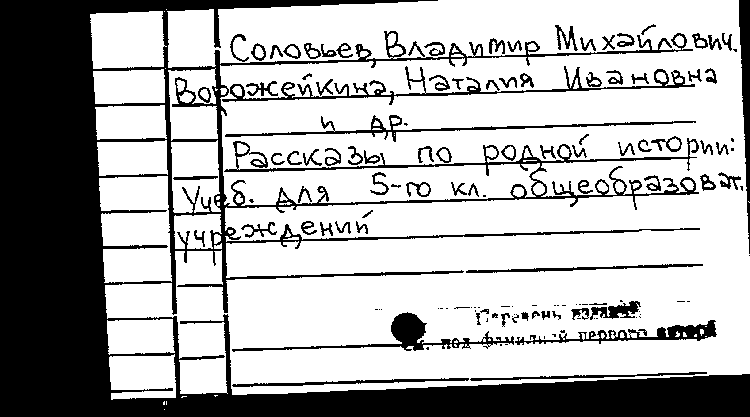 Соловьев, Владимир Михайлович.
Ворожейкина, Наталия Ивановна
и др.
Рассказы по родной истории:
Учеб. для 5-го кл. общеобразоват.
учреждений
Перечень изданий
см. под фамилией первого автора